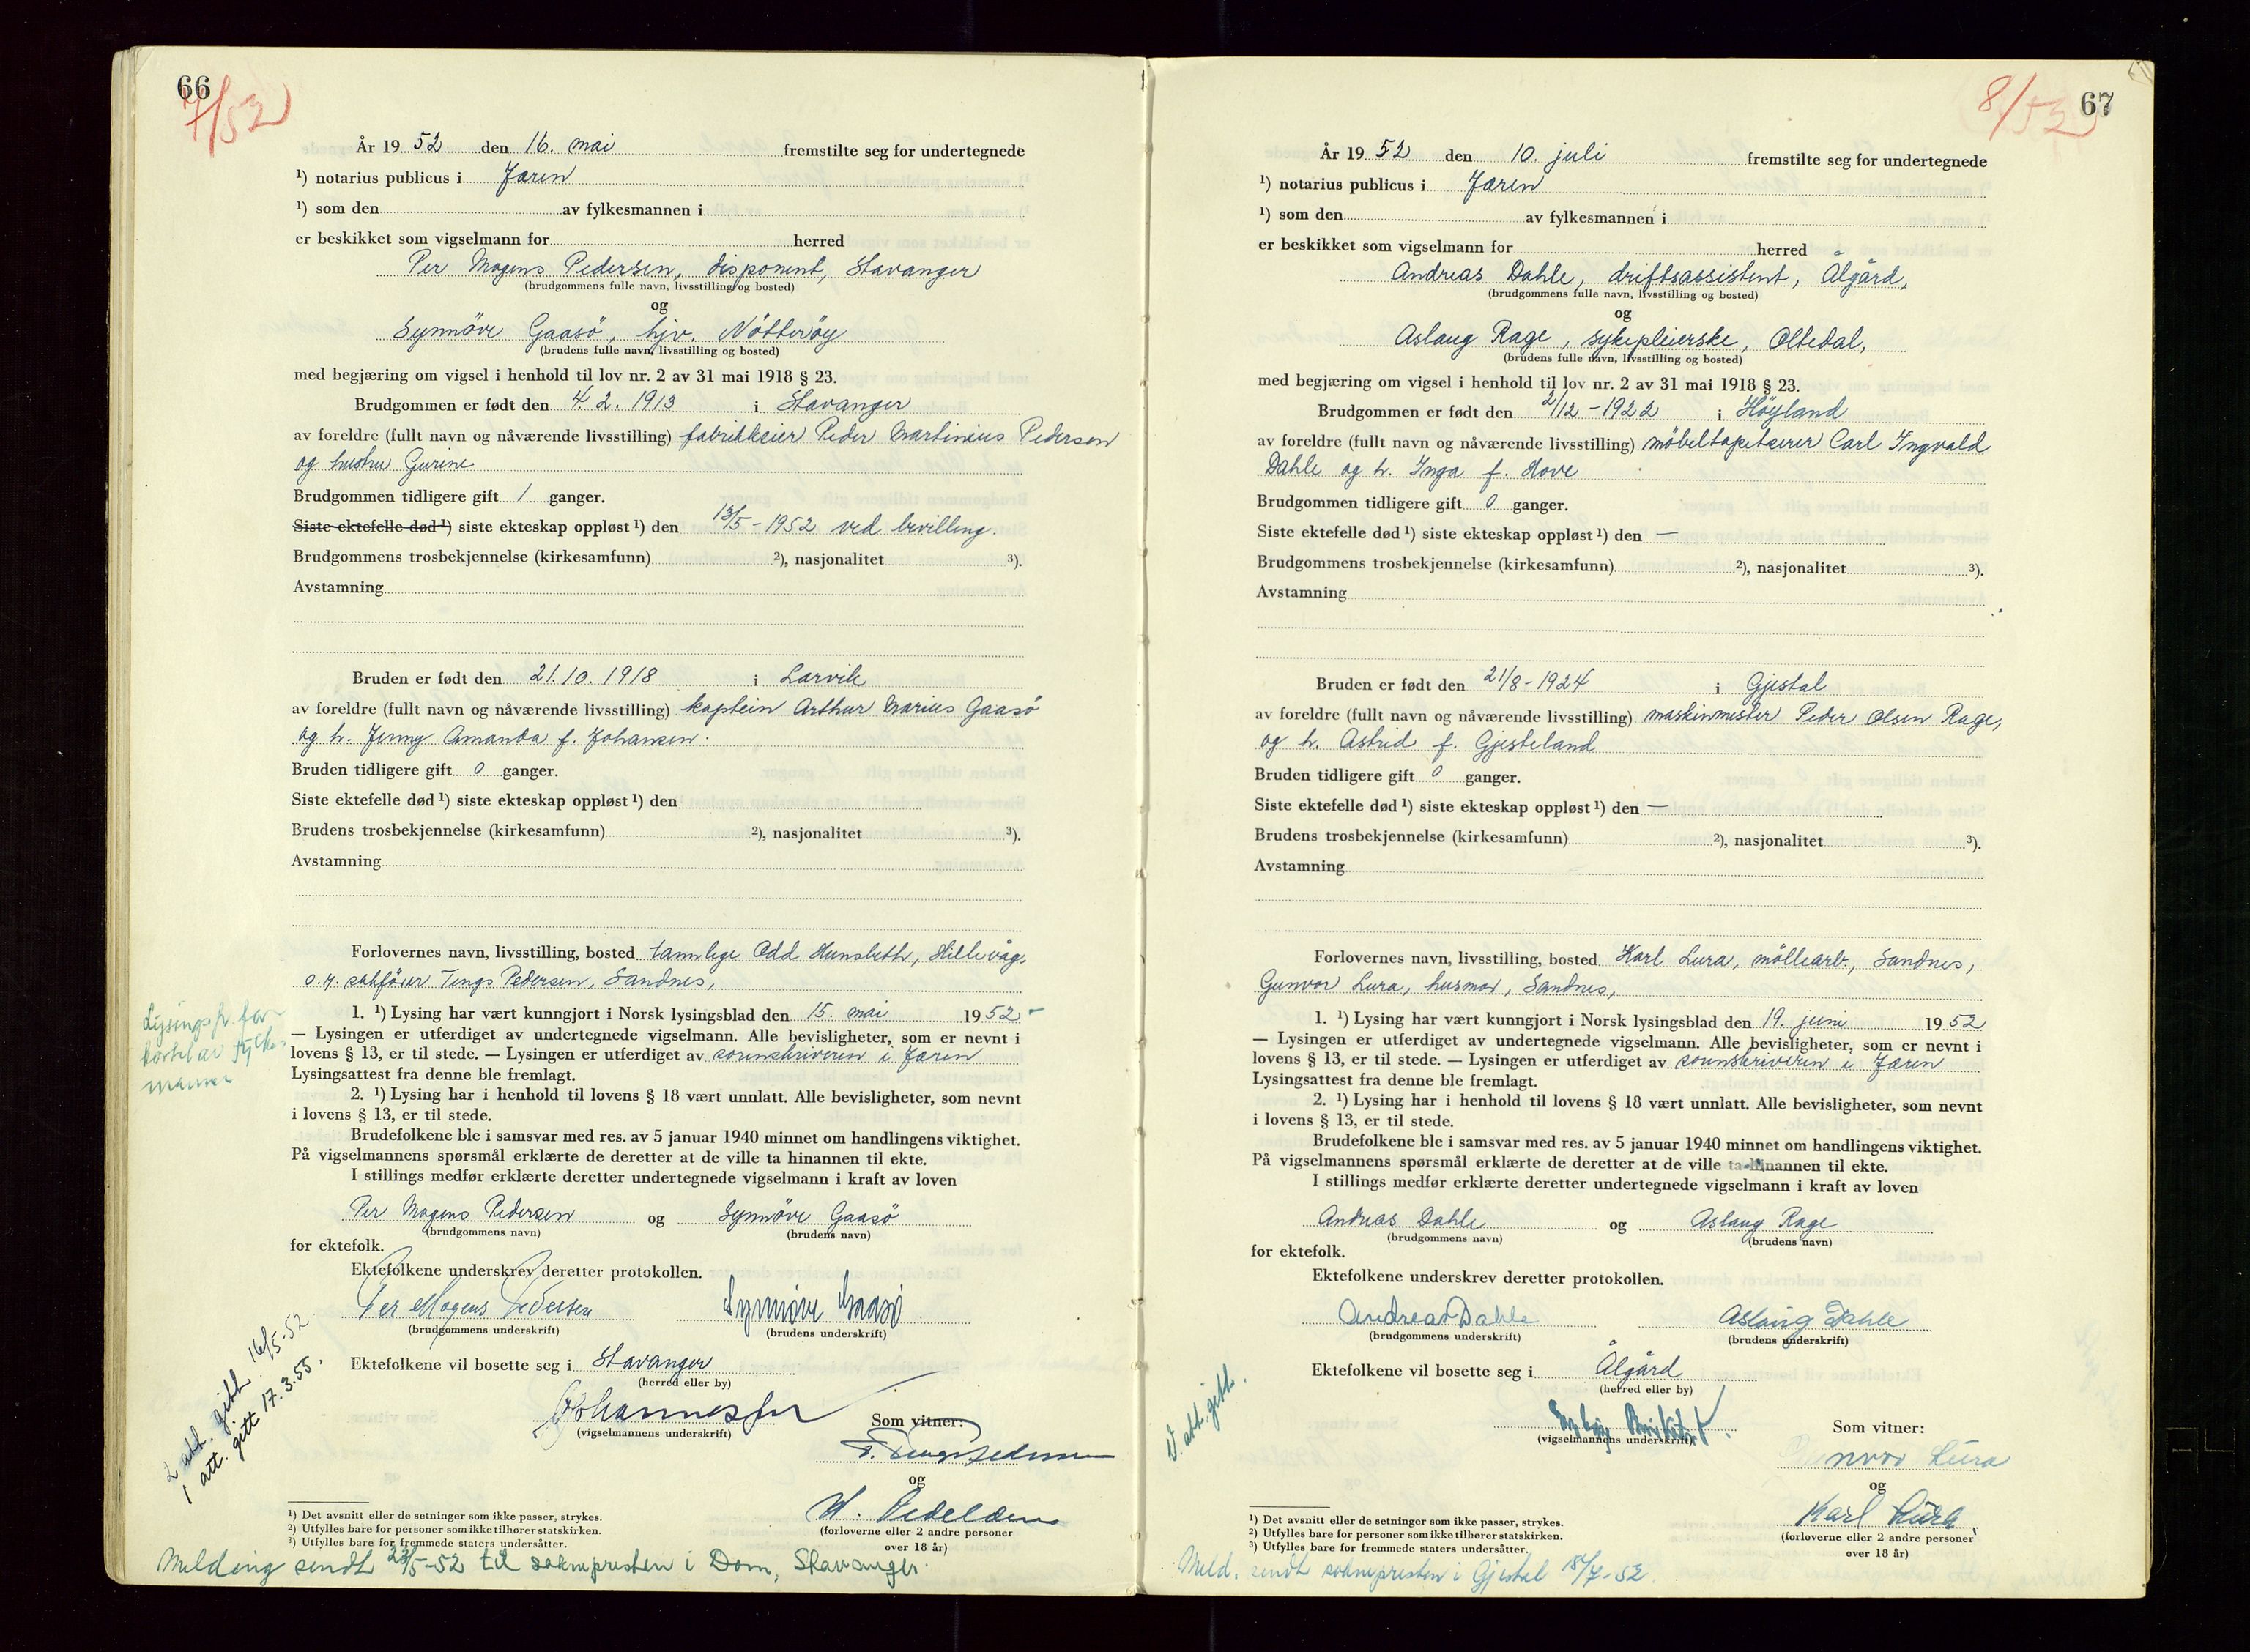 66
7/52
År 19 52 den 16. mai fremstilte seg for undertegnede
¹) notarius publicus i Jæren
¹) som den av fylkesmannen i
er beskikket som vigselmann for herred
Per Mogens Pedersen, disponent, Stavanger
(brudgommens fulle navn, livsstilling og bosted)
og
Synnöve Gaasö, hjv. Nötteröy
(brudens fulle navn, livsstilling og bosted)
med begjæring om vigsel i henhold til lov nr. 2 av 31 mai 1918 § 23.
Brudgommen er født den 4. 2. 1913 i Stavanger
av foreldre (fullt navn og nåværende livsstilling) fabrikkeier Peder Martinius Pedersen
og hustru Gurine
Brudgommen tidligere gift 1 ganger.
Siste ektefelle død ¹) siste ekteskap oppløst ¹) den 13/5 - 1952 ved bevilling.
Brudgommens trosbekjennelse (kirkesamfunn) ²), nasjonalitet ³).
Avstamning
Bruden er født den 21. 10. 1918 i Larvik
av foreldre (fullt navn og nåværende livsstilling) kaptein Arthur Marius Gaasö
og h. Jenny Amanda f. Johansen.
Bruden tidligere gift 0 ganger.
Siste ektefelle død ¹) siste ekteskap oppløst ¹) den
Brudens trosbekjennelse (kirkesamfunn) ²), nasjonalitet ³).
Avstamning
Forlovernes navn, livsstilling, bosted tannlege Odd Hunsbeth, Hillevåg,
o.r. sakförer Tengs Pedersen, Sandnes,
1. ¹) Lysing har vært kunngjort i Norsk lysingsblad den 15. mai 19 52
— Lysingen er utferdiget av undertegnede vigselmann. Alle bevisligheter, som er nevnt i
lovens § 13, er til stede. — Lysingen er utferdiget av sorenskriveren i Jæren
Lysingsattest fra denne ble fremlagt.
2. ¹) Lysing har i henhold til lovens § 18 vært unnlatt. Alle bevisligheter, som nevnt
i lovens § 13, er til stede.
Brudefolkene ble i samsvar med res. av 5 januar 1940 minnet om handlingens viktighet.
På vigselmannens spørsmål erklærte de deretter at de ville ta hinannen til ekte.
I stillings medfør erklærte deretter undertegnede vigselmann i kraft av loven
Per Mogens Pedersen og Synnöve Gaasö
(brudgommens navn) (brudens navn)
for ektefolk.
Ektefolkene underskrev deretter protokollen.
Per Mogens Pedersen Synnöve Gaasö
(brudgommens underskrift) (brudens underskrift)
Ektefolkene vil bosette seg i Stavanger
(herred eller by)
(vigselmannens underskrift)
Som vitner:
og
(forloverne eller 2 andre personer
over 18 år)
Lysingsfr. for-
kortet av fylkes-
mannen
2 att. gitt 16/5-52
1 att. gitt 17.3.55.
¹) Det avsnitt eller de setninger som ikke passer, strykes.
²) Utfylles bare for personer som ikke tilhører statskirken.
³) Utfylles bare for fremmede staters undersåtter.
Melding sendt 23/5-52 til soknepresten i Dom, Stavanger.
67
8/52
År 19 52 den 10. juli fremstilte seg for undertegnede
¹) notarius publicus i Jæren
¹) som den av fylkesmannen i
er beskikket som vigselmann for herred
Andreas Dahle, driftsassistent, Ålgård,
(brudgommens fulle navn, livsstilling og bosted)
og
Aslaug Rage, sykepleierske, Oltedal,
(brudens fulle navn, livsstilling og bosted)
med begjæring om vigsel i henhold til lov nr. 2 av 31 mai 1918 § 23.
Brudgommen er født den 2/12 - 1922 i Höyland
av foreldre (fullt navn og nåværende livsstilling) möbeltapetserer Carl Ingvald
Dahle og h. Inga f. Hove
Brudgommen tidligere gift 0 ganger.
Siste ektefelle død ¹) siste ekteskap oppløst ¹) den —
Brudgommens trosbekjennelse (kirkesamfunn) ²), nasjonalitet ³).
Avstamning
Bruden er født den 21/8 - 1924 i Gjestal
av foreldre (fullt navn og nåværende livsstilling) maskinmester Peder Olsen Rage,
og h. Astrid f. Gjesteland
Bruden tidligere gift 0 ganger.
Siste ektefelle død ¹) siste ekteskap oppløst ¹) den —
Brudens trosbekjennelse (kirkesamfunn) ²), nasjonalitet ³).
Avstamning
Forlovernes navn, livsstilling, bosted Karl Lura, möllearb., Sandnes,
Gunvor Lura, husmor, Sandnes,
1. ¹) Lysing har vært kunngjort i Norsk lysingsblad den 19. juni 19 52
— Lysingen er utferdiget av undertegnede vigselmann. Alle bevisligheter, som er nevnt i
lovens § 13, er til stede. — Lysingen er utferdiget av sorenskriveren i Jæren
Lysingsattest fra denne ble fremlagt.
2. ¹) Lysing har i henhold til lovens § 18 vært unnlatt. Alle bevisligheter, som nevnt
i lovens § 13, er til stede.
Brudefolkene ble i samsvar med res. av 5 januar 1940 minnet om handlingens viktighet.
På vigselmannens spørsmål erklærte de deretter at de ville ta hinannen til ekte.
I stillings medfør erklærte deretter undertegnede vigselmann i kraft av loven
Andreas Dahle og Aslaug Rage
(brudgommens navn) (brudens navn)
for ektefolk.
Ektefolkene underskrev deretter protokollen.
Andreas Dahle Aslaug Dahle
(brudgommens underskrift) (brudens underskrift)
Ektefolkene vil bosette seg i Ålgård
(herred eller by)
(vigselmannens underskrift)
Som vitner:
Gunvor Lura
og
Karl Lura
(forloverne eller 2 andre personer
over 18 år)
V. att. gitt.
¹) Det avsnitt eller de setninger som ikke passer, strykes.
²) Utfylles bare for personer som ikke tilhører statskirken.
³) Utfylles bare for fremmede staters undersåtter.
Meld. sendt soknepresten i Gjestal 18/7-52.